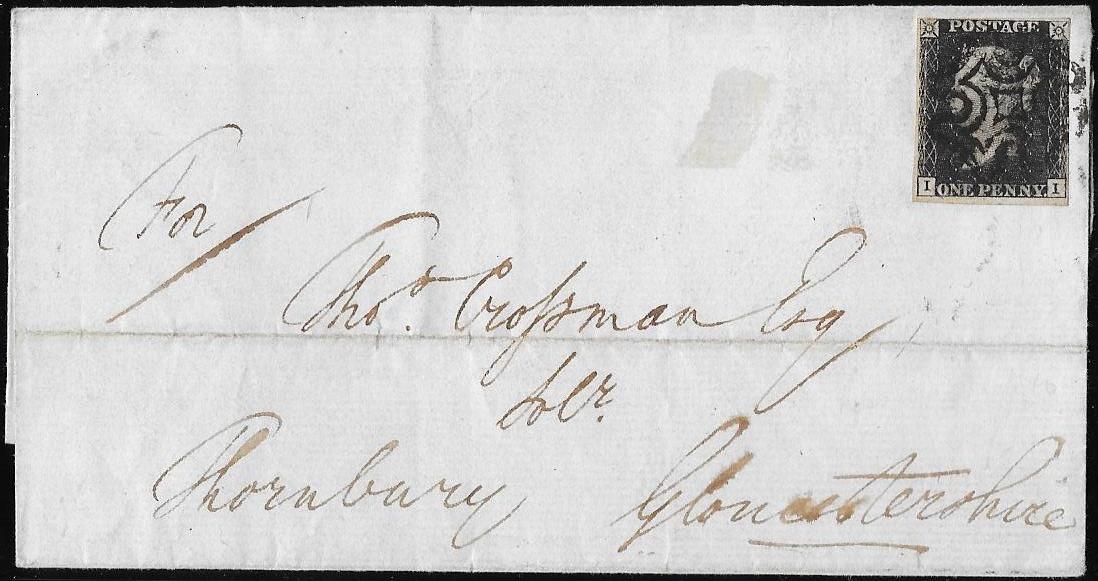 POSTAGE
I ONE PENNY I
For
Thos. Crossman Esq
Solr.
Thornbury Gloucestershire